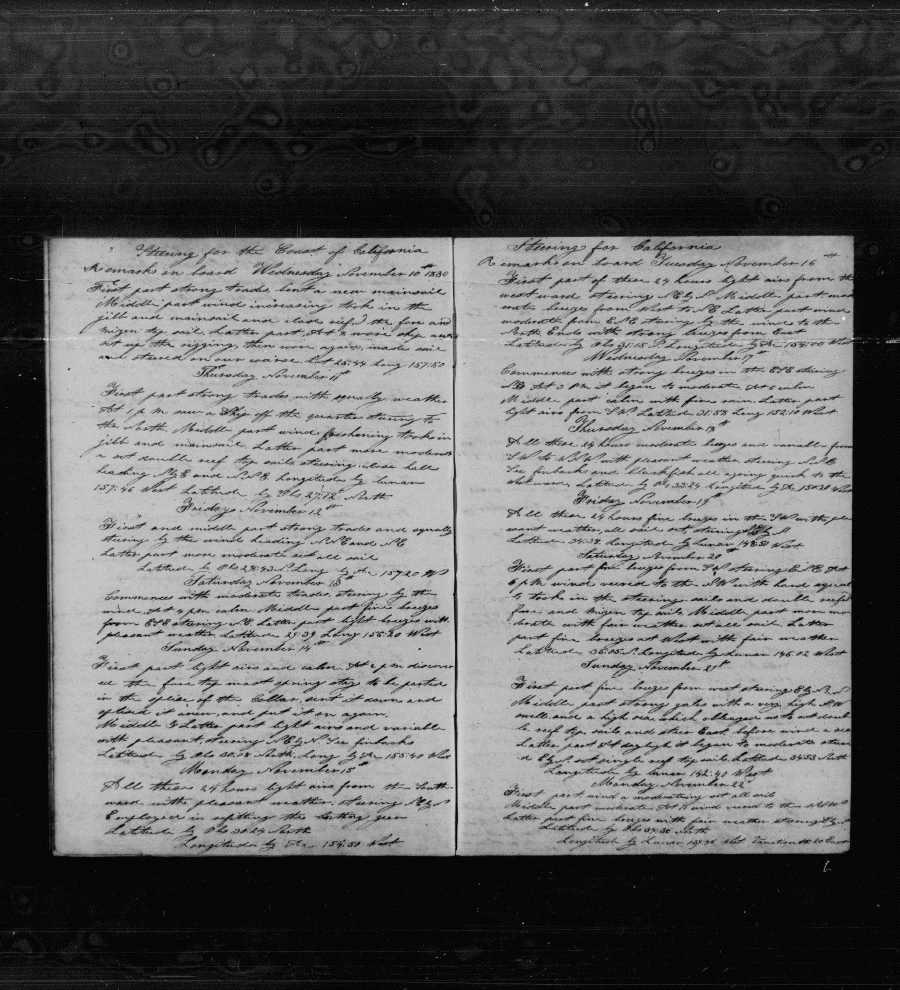 Steering for the Coast of California
Remarks on board Wednesday November 10th 1880
First part strong trades bent a new mainsail
Middle part wind increasing took in the
jibb and mainsail and close reefd the fore and
mizen top sail. Latter part At 4 wore ship and
set up the rigging, then wore again, made sail
and steered on our course. Lat 25:44 Long 157:50
Thursday November 11th
First part strong trades with squally weather
At 1 p.m. saw a Ship off the quarter steering to
the North. Middle part wind freshening took in
jibb and mainsail. Latter part more moderate
a set double reef top sails steering close hall
heading N by E and N.N.E. Longitude by lunar
157:46 West Latitude by Obs 27:12 North
Friday November 12th
First and middle part strong trades and squally
steering by the wind heading N.N.E and N.E
Latter part more moderate set all sail
Latitude by Obs 28:43 N. Long by 157:20 W
Saturday November 13th
Commences with moderate trades, steering by the
wind. At 4 p.m calm. Middle part fine breezes
from ESE steering NE. Latter part light breezes with
pleasant weather Latitude 29:39 Long 156:20 West
Sunday November 14th
First part light airs and calm. At 2 p.m discover
ed the fore top mast spring stay to be parted
in the splice of the Collar. sent it down and
spliced it anew and put it on again.
Middle & Latter part light airs and variable
with pleasant steering NE by N. See finbacks
Latitude by Obs 30.08 North. Long by 155:40 West
Monday November 15th
All these 24 hours light airs from the South
ward with pleasant weather. steering NE by N
Employed in refitting the Cutting gear
Latitude by Obs 30:24 North
Longitude by 154:50 West
Steering for California
Remarks on board Tuesday November 16th
First part of these 24 hours light airs from the
westward steering NE by N. Middle part mod
erate breezes from West to N.E. Latter part wind
moderate from E.N.E steering by the wind to the
North. Ends with strong breezes from East
Latitude by Obs 31:15 N. Longitude by 154:00 West
Wednesday November 17th
Commences with strong breezes in the ESE steering
NE At 3 P.M. it began to moderate. At 6 calm
Middle part calm with fine rain. Latter part
light airs from SW Latitude 31:58 Long 152:10 West
Thursday November 18th
All these 24 hours moderate breezes and variable from
SW to NW with pleasant weather steering N.N.E
See finbacks and blackfish all agoing quick to the
Latitude by Obs 33:24 Longitude by West
Friday November 19th
All these 24 hours fine breezes in the SW with plea
sant weather, all sail out, steering by N
Latitude 34:38. Longitude by Lunar 148:50 West
Saturday November 20th
First part fine breezes from SW steering E.N.E. At
6 p.m. wind veered to the NW with hard squal
ls took in the steering sails and double reefd
fore and mizen top sails Middle part more mo
derate with fair weather set all sail. Latter
part fine breezes at West with fair weather
Latitude 35:05 N. Longitude by Lunar 145:02 West
Sunday November 21st
First part fine breeze from west steering E by N.
Middle part strong gales with a very high NW
swell and a high sea, which obliged us to set doub
le reef top sails and steer East, before wind & sea
Latter part At day light it began to moderate steere
d E by N. set single reef top sails Latitude 34:53 North
Longitude by lunar 142:40 West
Monday November 22d
First part wind a moderating set all sail
Middle part moderate. At 12 wind veered to the
Latter part fine breezes with fair weather steering E by N
Latitude by Obs 34:36 North
Longitude by Lunar West Variation East